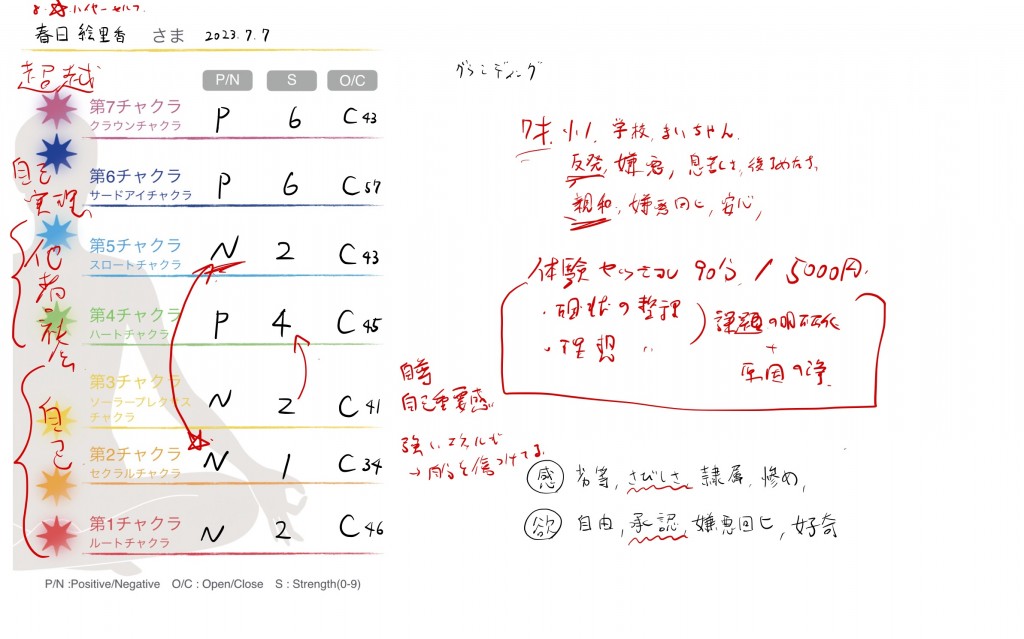 ハイヤーセルフ
春日 絵里香 さま 2023.7.7
超越
P/N S O/C
第7チャクラ
クラウンチャクラ
P 6 C 43
第6チャクラ
サードアイチャクラ
P 6 C 57
自己
実現
第5チャクラ
スロートチャクラ
N 2 C 43
他者
社会
第4チャクラ
ハートチャクラ
P 4 C 45
第3チャクラ
ソーラープレクサス
チャクラ
N 2 C 41
自己
第2チャクラ
セクラルチャクラ
N 1 C 34
第1チャクラ
ルートチャクラ
N 2 C 46
P/N :Positive/Negative O/C : Open/Close S : Strength(0-9)
グランディング
7才, 小1, 学校, まいちゃん,
反発, 嫌悪, 息苦しさ, 後ろめたさ,
親和, 嫌悪回ヒ, 安心,
体験セッション 90分 / 5000円.
・現状の整理
・理想 〃
課題の明確化
+
原因の浄
自尊
自己重要感
強いエネルギ
→ 自分を傷つけてる.
感 劣等, さびしさ, 隷属, 惨め,
欲 自由, 承認, 嫌悪回ヒ, 好奇